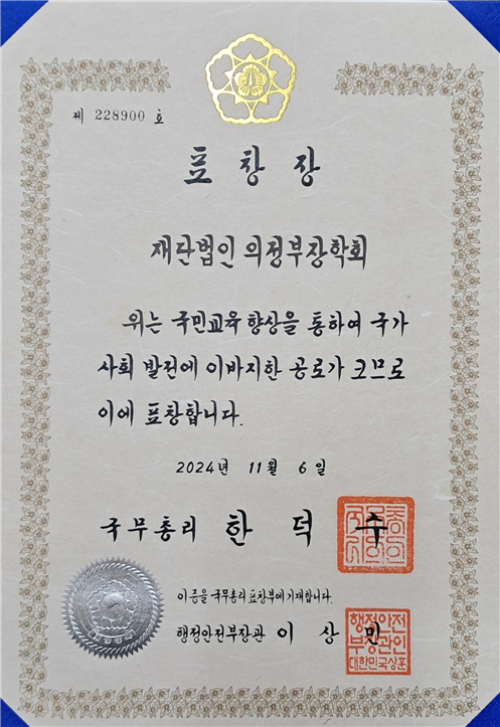 제 228900 호
표 창 장
재단법인 의정부장학회
위는 국민교육 향상을 통하여 국가
사회 발전에 이바지한 공로가 크므로
이에 표창합니다.
2024년 11월 6일
국무총리 한 덕 수
이 증을 국무총리 표창부에 기재합니다.
행정안전부장관 이 상 민
행정안전
부장관인
대한민국상훈